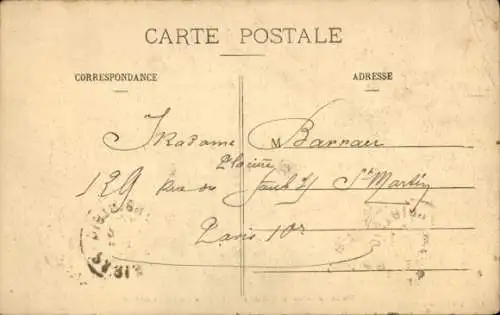 CARTE POSTALE
CORRESPONDANCE
ADRESSE
Madame M Barrau
129 Rue du Faub g St Martin
Paris 10e